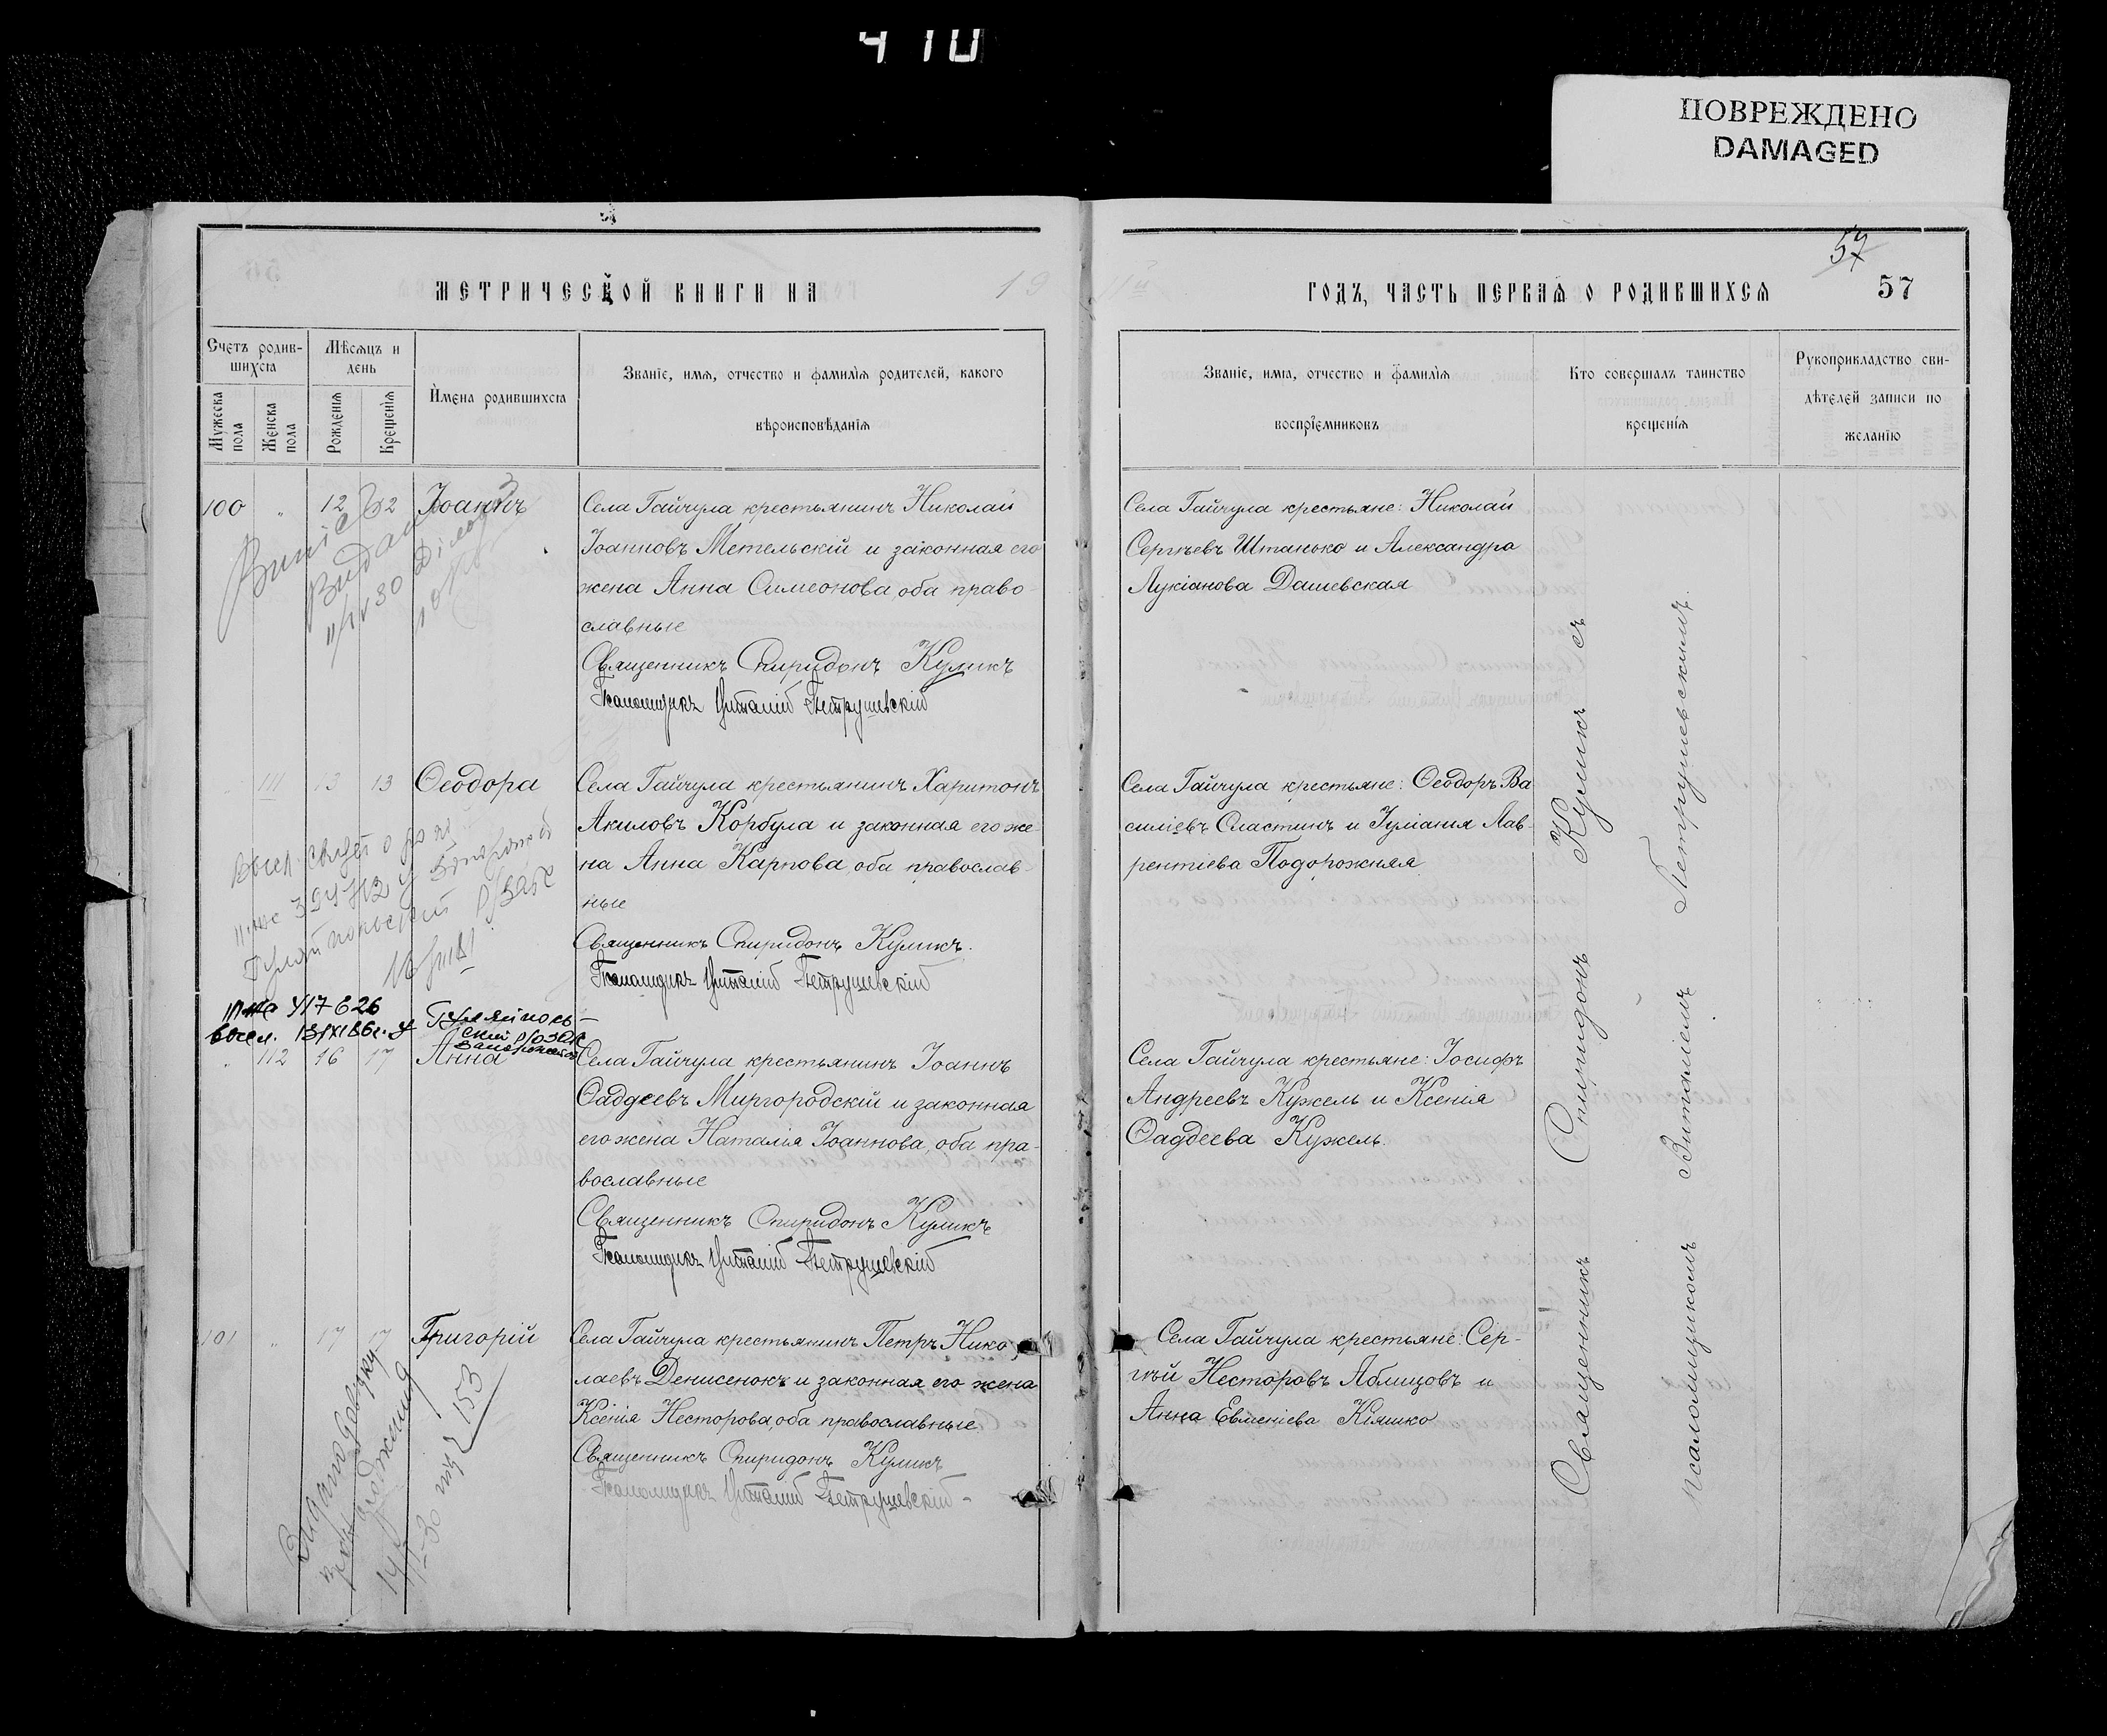 410
ПОВРЕЖДЕНО
DAMAGED
МЕТРИЧЕСКОЙ КНИГИ НА 19
11 ГОДЪ, ЧАСТЬ ПЕРВАЯ О РОДИВШИХСЯ
57
57
Счетъ родившихся
Мужеска пола
Женска пола
Мѣсяцъ и день
Рожденія
Крещенія
Имена родившихся
Званіе, имя, отчество и фамилія родителей, какого
вѣроисповѣданія
Званіе, имя, отчество и фамилія
воспріемниковъ
Кто совершалъ таинство
крещенія
Рукоприкладство сви-
дѣтелей записи по
желанію
100 " 12 12 Іоаннъ
Села Гайчула крестьянинъ Николай
Іоанновъ Метельскій и законная его
жена Анна Симеонова, оба право-
славные
Священникъ Спиридонъ Куликъ
Псаломщикъ Виталій Петрушевскій
Села Гайчула крестьяне: Николай
Сергѣевъ Штанько и Александра
Лукіанова Дашевская
111 13 13 Ѳеодора
Села Гайчула крестьянинъ Харитонъ
Акиловъ Корбула и законная его же-
на Анна Карпова, оба православ-
ные
Священникъ Спиридонъ Куликъ.
Псаломщикъ Виталій Петрушевскій
Села Гайчула крестьяне: Ѳеодоръ Ва
силіевъ Сластинъ и Іуліанія Лав-
рентіева Подорожняя
417626
Гуляйполь-
ский р/ЗАГС
" 112 16 17 Анна
Села Гайчула крестьянинъ Іоаннъ
Ѳаддеевъ Миргородскій и законная
его жена Наталія Іоаннова, оба пра-
вославные
Священникъ Спиридонъ Куликъ
Псаломщикъ Виталій Петрушевскій
Села Гайчула крестьяне: Іосифъ
Андреевъ Кужель и Ксенія
Ѳаддеева Кужель.
101 " 17 17 Григорій
Села Гайчула крестьянинъ Петръ Нико-
лаевъ Денисенокъ и законная его жена
Ксенія Несторова, оба православные
Священникъ Спиридонъ Куликъ
Псаломщикъ Виталій Петрушевскій
Села Гайчула крестьяне: Сер-
гѣй Несторовъ Аблицовъ и
Анна Евменіева Кіяшко
Священникъ Спиридонъ Куликъ съ
псаломщикомъ Виталіемъ Петрушевскимъ.